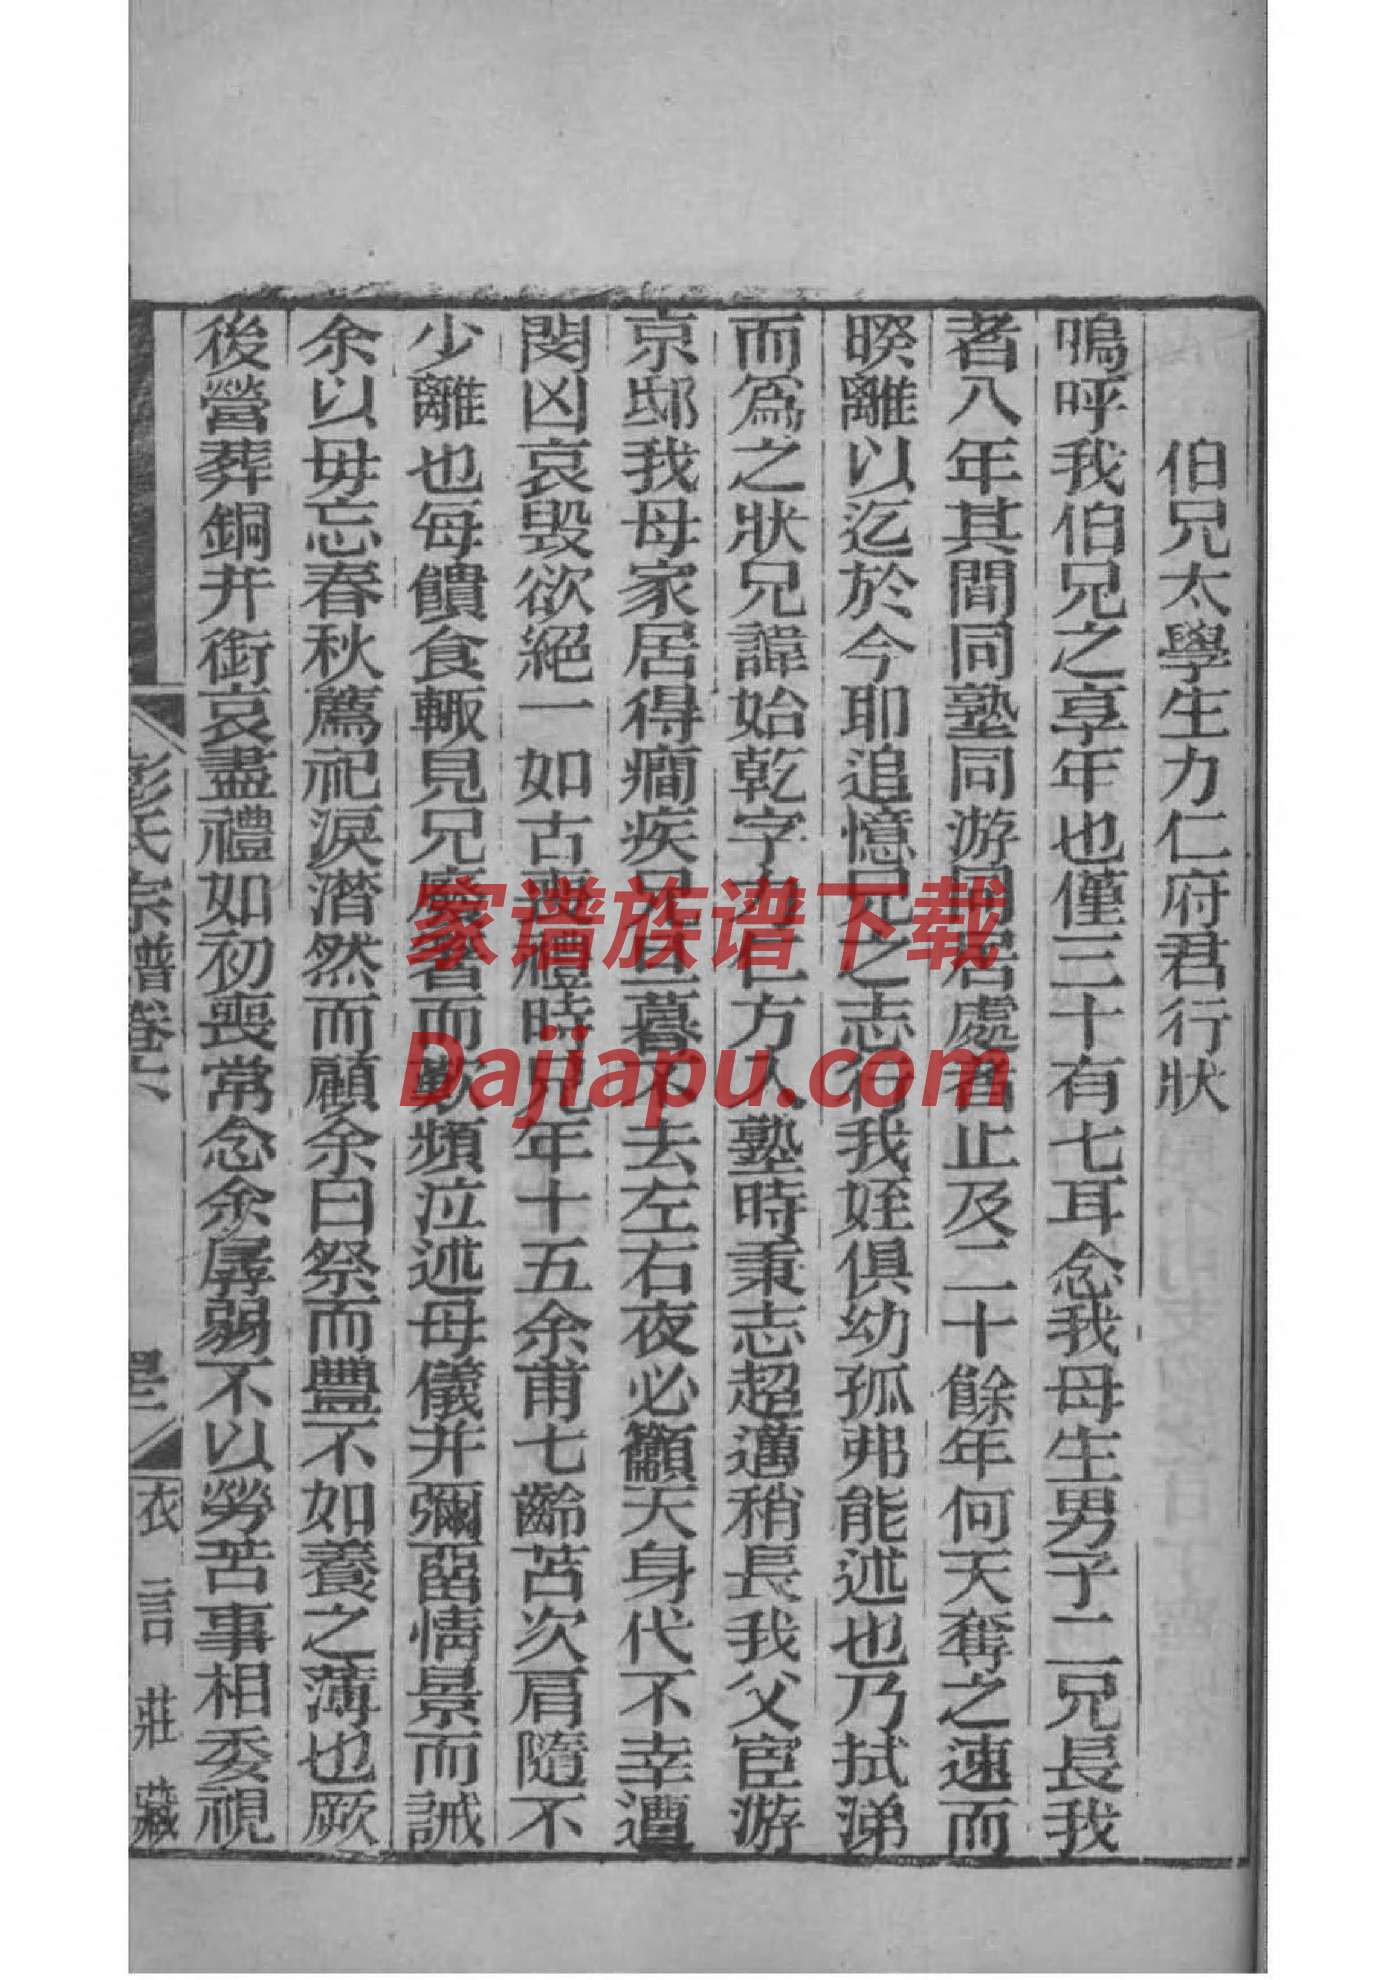 伯兄太學生力仁府君行狀
嗚呼我伯兄之享年也僅三十有七耳念我母生男子二兄長我
者八年其間同塾同游同居處者止及二十餘年何天奪之速而
暌離以迄於今耶追憶兄之志行我姪俱幼孤弗能述也乃拭涕
而爲之狀兄諱始乾字力仁方入塾時秉志超邁稍長我父宦游
京邸我母家居得癎疾兄旦暮不去左右夜必籲天身代不幸遭
閔凶哀毀欲絕一如古喪禮時兄年十五余甫七齡苫次肩隨不
少離也每饋食輒見兄廢箸而歎頻泣述母儀并彌留情景而誡
余以毋忘春秋薦祀淚潸然而顧余曰祭而豐不如養之薄也厥
後營葬銅井銜哀盡禮如初喪常念余孱弱不以勞苦事相委視
彭氏宗譜卷 衣言莊藏
家谱族谱下载
Dajiapu.com